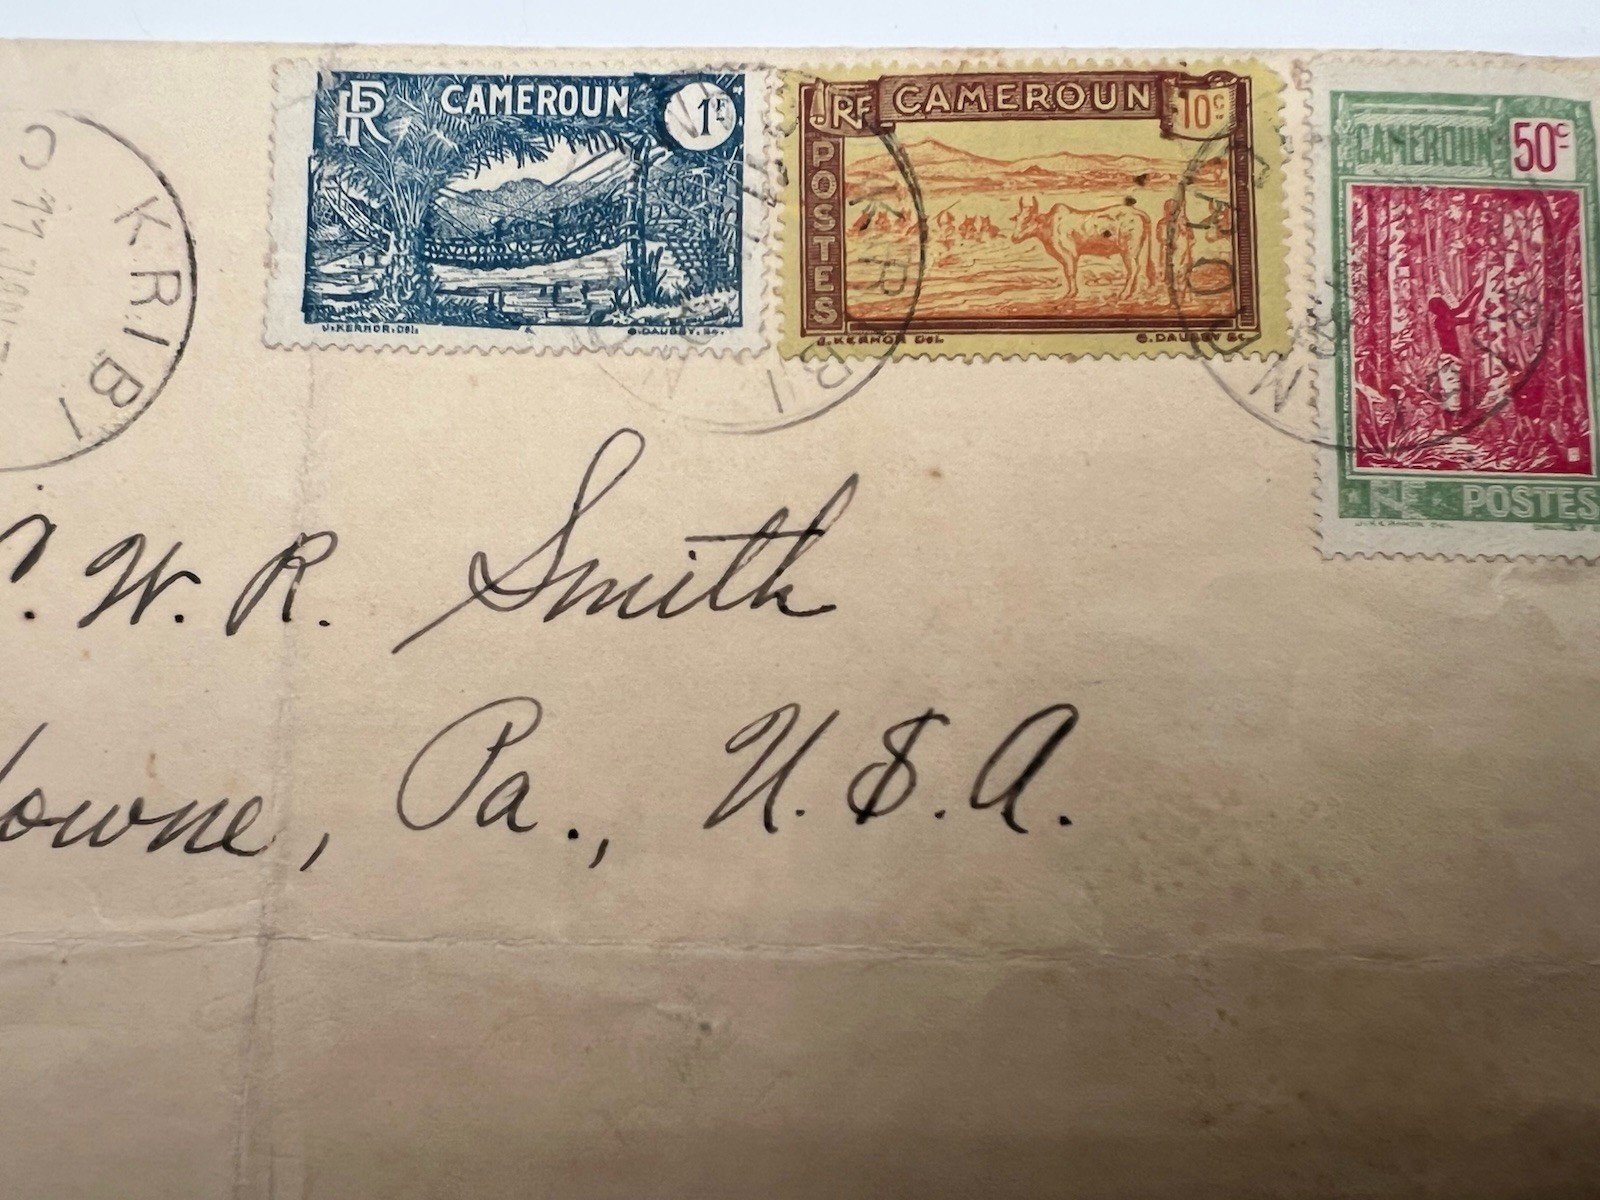 RF CAMEROUN 1F
J. KERHOR. DEL. G. DAUSSY. SC.
RF CAMEROUN 10c
POSTES
J. KERHOR DEL G. DAUSSY SC
CAMEROUN 50c
RF POSTES
KRIBI
KRIBI
KRIBI
W. R. Smith
Pa., U.S.A.